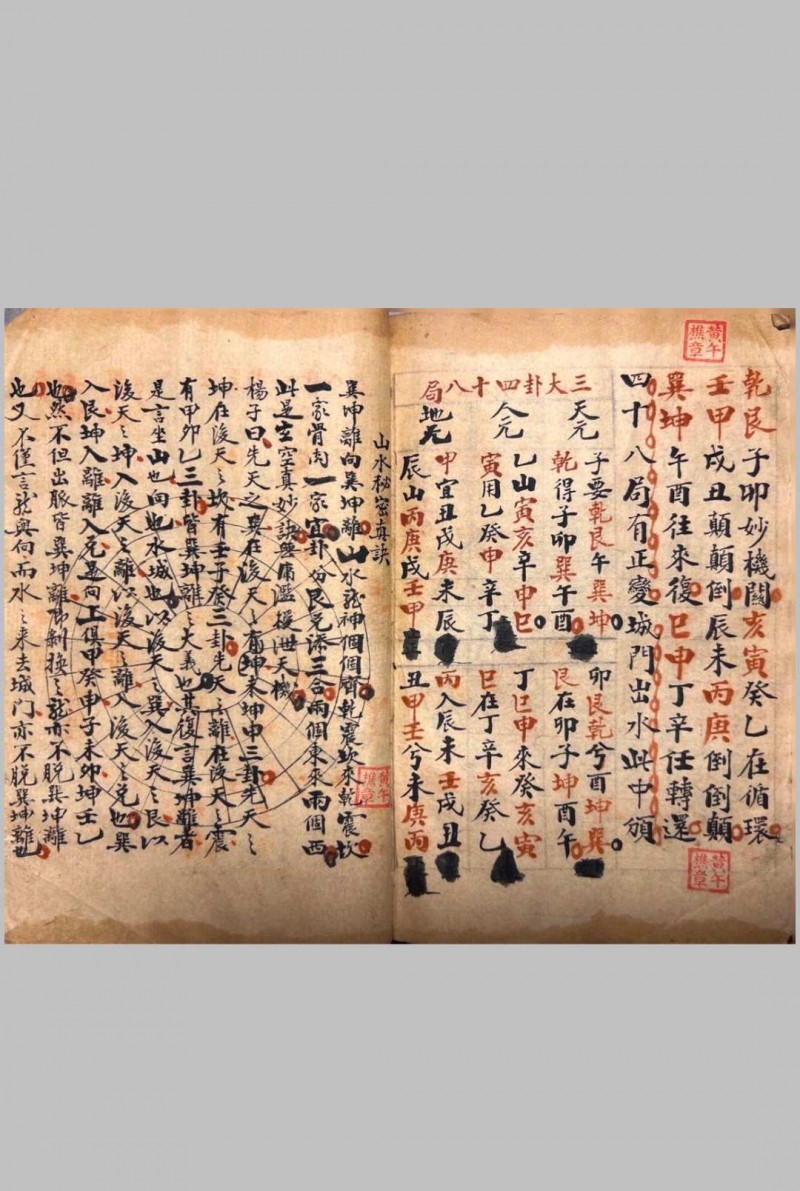 乾艮子卯妙機關亥寅癸乙在循環
壬甲戌丑顛顛倒辰未丙庚倒倒顛
巽坤午酉往來復巳申丁辛任轉還
四十八局有正變城門出水此中頒
三大卦四十八局
天元
子要乾艮午巽坤
卯艮乾兮酉坤巽
乾得子卯巽午酉
艮在卯子坤酉午
人元
乙山寅亥辛申巳
丁巳申來癸亥寅
寅用乙癸申辛丁
巳在丁辛亥癸乙
地元
甲宜丑戌庚未辰
丙入辰未壬戌丑
辰山丙庚戌壬甲
丑甲壬兮未庚丙
黃午樵章
黃午樵章
黃午樵章
山水秘密真訣
巽坤離向巽坤離山水龍神個個齊乾震坎來乾震坎
一家骨肉一家宜卦分艮兌添三合兩個東來兩個西
此是空空真妙訣無庸濫授泄天機
楊子曰先天之巽在後天之有坤未坤申三卦先天之
坤在後天之坎有壬子癸三卦先天之離在後天之震
有甲卯乙三卦皆巽坤離之大義也其復言巽坤離者
是言坐山也向也水城也以後天之巽入後天之艮以
後天之坤入後天之離以後天之離入後天之兌也巽
入艮坤入離離入兌是向上偈甲癸申子未卯坤壬乙
也然不但出脈皆巽坤離即剝換之龍亦不脫巽坤離
也又不僅言龍與向而水之來去城門亦不脫巽坤離也